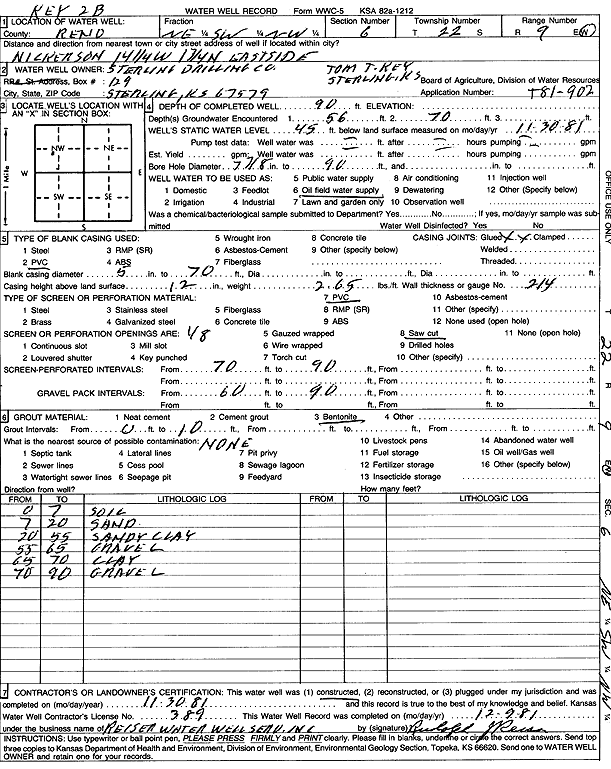 KEY 2B WATER WELL RECORD Form WWC-5 KSA 82a-1212
1 LOCATION OF WATER WELL: Fraction Section Number Township Number Range Number
County: RENO NE ¼ SW ¼ NW ¼ 6 T 22 S R 9 E/W
Distance and direction from nearest town or city street address of well if located within city?
NICKERSON 1 1/4 W EASTSIDE
2 WATER WELL OWNER: STERLING DRILLING CO. TOM T-KEY
RR#, St. Address, Box # : 129 STERLING, KS Board of Agriculture, Division of Water Resources
City, State, ZIP Code : STERLING, KS 67579 Application Number: T81-902
3 LOCATE WELL'S LOCATION WITH AN "X" IN SECTION BOX:
N
NW NE
W E
SW SE
S
1 Mile
4 DEPTH OF COMPLETED WELL. 90 ft. ELEVATION:
Depth(s) Groundwater Encountered 1. 56 ft. 2. 70 ft. 3.
WELL'S STATIC WATER LEVEL 45 ft. below land surface measured on mo/day/yr 11-30-81
Pump test data: Well water was ft. after hours pumping gpm
Est. Yield gpm; Well water was ft. after hours pumping gpm
Bore Hole Diameter 7 7/8 in. to 90 ft., and in. to ft.
WELL WATER TO BE USED AS: 5 Public water supply 8 Air conditioning 11 Injection well
1 Domestic 3 Feedlot 6 Oil field water supply 9 Dewatering 12 Other (Specify below)
2 Irrigation 4 Industrial 7 Lawn and garden only 10 Observation well
Was a chemical/bacteriological sample submitted to Department? Yes No ; If yes, mo/day/yr sample was submitted Water Well Disinfected? Yes No
5 TYPE OF BLANK CASING USED: 5 Wrought iron 8 Concrete tile CASING JOINTS: Glued X X Clamped
1 Steel 3 RMP (SR) 6 Asbestos-Cement 9 Other (specify below) Welded
2 PVC 4 ABS 7 Fiberglass Threaded
Blank casing diameter 5 in. to 70 ft., Dia in. to ft., Dia in. to ft.
Casing height above land surface 12 in., weight 2.65 lbs./ft. Wall thickness or gauge No. 214
TYPE OF SCREEN OR PERFORATION MATERIAL: 7 PVC 10 Asbestos-cement
1 Steel 3 Stainless steel 5 Fiberglass 8 RMP (SR) 11 Other (specify)
2 Brass 4 Galvanized steel 6 Concrete tile 9 ABS 12 None used (open hole)
SCREEN OR PERFORATION OPENINGS ARE: 48 5 Gauzed wrapped 8 Saw cut 11 None (open hole)
1 Continuous slot 3 Mill slot 6 Wire wrapped 9 Drilled holes
2 Louvered shutter 4 Key punched 7 Torch cut 10 Other (specify)
SCREEN-PERFORATED INTERVALS: From 70 ft. to 90 ft., From ft. to ft.
From ft. to ft., From ft. to ft.
GRAVEL PACK INTERVALS: From 60 ft. to 90 ft., From ft. to ft.
From ft. to ft., From ft. to ft.
6 GROUT MATERIAL: 1 Neat cement 2 Cement grout 3 Bentonite 4 Other
Grout Intervals: From 0 ft. to 10 ft., From ft. to ft., From ft. to ft.
What is the nearest source of possible contamination: NONE 10 Livestock pens 14 Abandoned water well
1 Septic tank 4 Lateral lines 7 Pit privy 11 Fuel storage 15 Oil well/Gas well
2 Sewer lines 5 Cess pool 8 Sewage lagoon 12 Fertilizer storage 16 Other (specify below)
3 Watertight sewer lines 6 Seepage pit 9 Feedyard 13 Insecticide storage
Direction from well? How many feet?
FROM TO LITHOLOGIC LOG FROM TO LITHOLOGIC LOG
0 7 SOIL
7 20 SAND
20 55 SANDY CLAY
55 65 GRAVEL
65 70 CLAY
70 90 GRAVEL
7 CONTRACTOR'S OR LANDOWNER'S CERTIFICATION: This water well was (1) constructed, (2) reconstructed, or (3) plugged under my jurisdiction and was
completed on (mo/day/year) 11-30-81 and this record is true to the best of my knowledge and belief. Kansas
Water Well Contractor's License No. 389 This Water Well Record was completed on (mo/day/yr) 12-9-81
under the business name of REISER WATER WELL SERV. INC by (signature) Rudolph J Reiser
INSTRUCTIONS: Use typewriter or ball point pen, PLEASE PRESS FIRMLY and PRINT clearly. Please fill in blanks, underline or circle the correct answers. Send top
three copies to Kansas Department of Health and Environment, Division of Environment, Environmental Geology Section, Topeka, KS 66620. Send one to WATER WELL
OWNER and retain one for your records.
OFFICE USE ONLY
T 22 R 9 EW SEC. 6 NE ¼ SW ¼ NW ¼